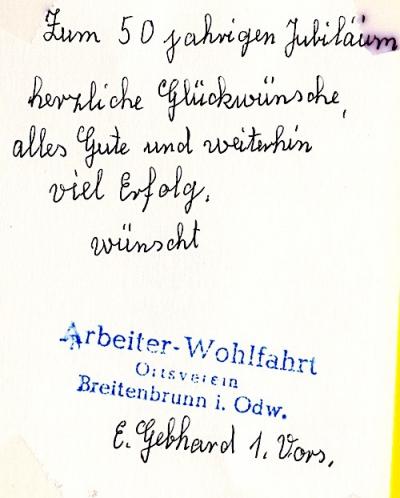 Zum 50 jahrigen Jubiläum
herzliche Glückwünsche,
alles Gute und weiterhin
viel Erfolg.
wünscht
Arbeiter-Wohlfahrt
Ortsverein
Breitenbrunn i. Odw.
E. Gebhard 1. Vors.